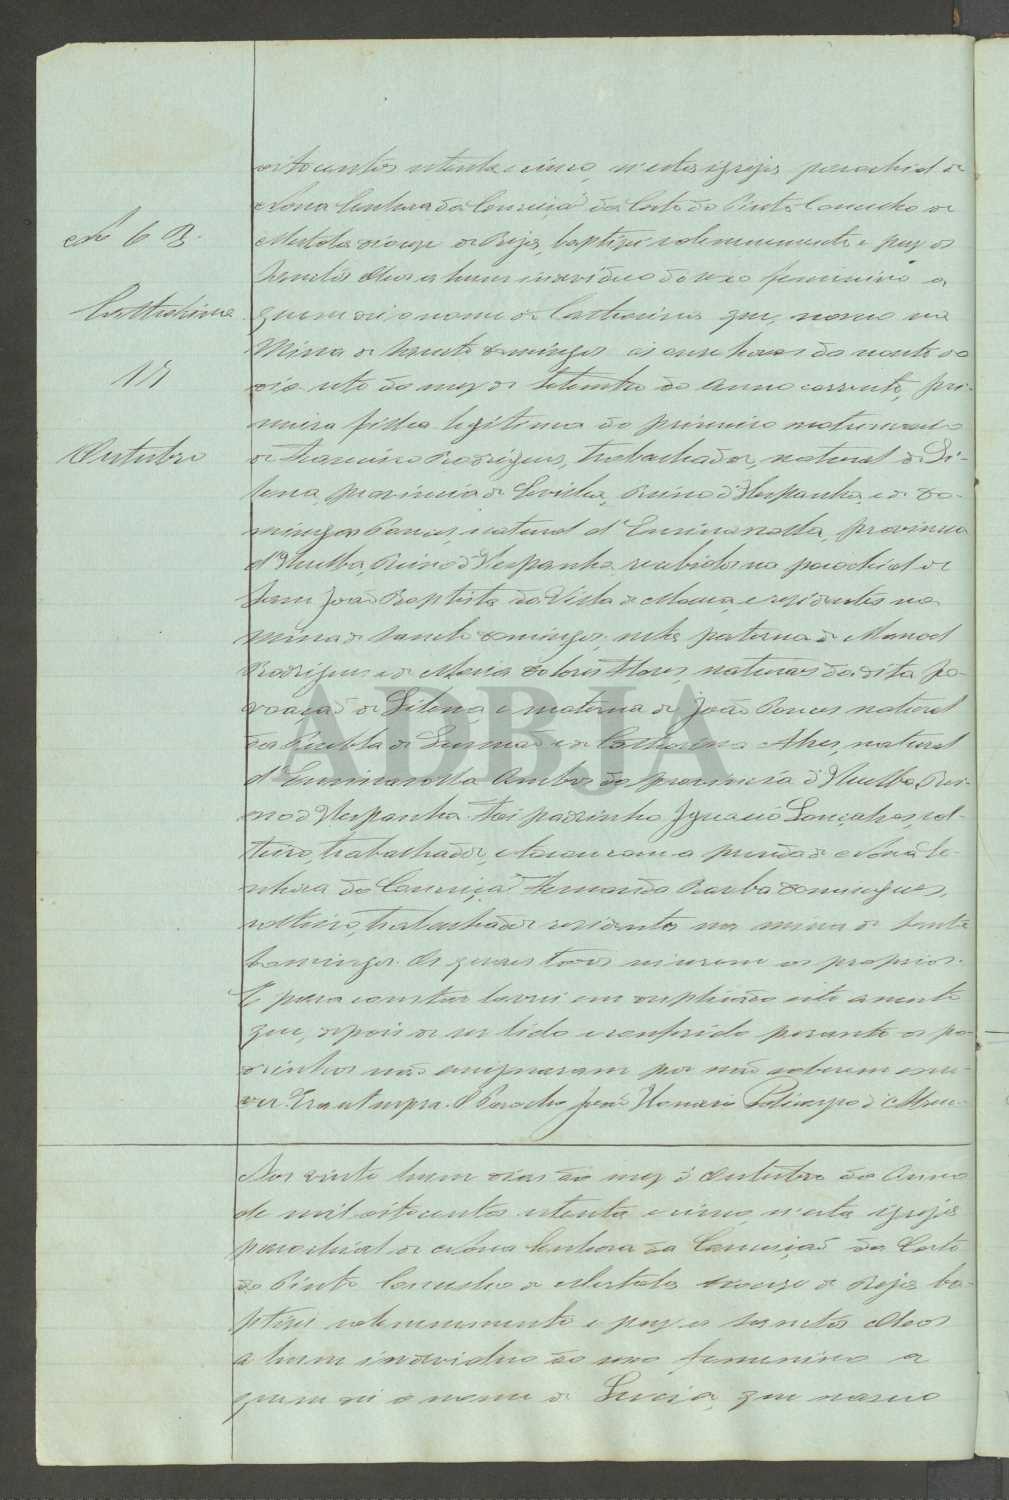 oitocentos setenta e cinco, n'esta igreja parochial de
Nossa Senhora da Conceição da Corte do Pinto Concelho de
Mertola diocese de Beja, baptizei solemnemente e puz os
Sanctos Oleos a hum individuo do sexo feminino a
quem dei o nome de Catharina que, nasceo na
Mina de Sancto Domingos ás onze horas da noute do
dia sete do mez de Setembro do Anno corrente, pri-
meira filha legitima do primeiro matrimonio
de Rodrigues, trabalhador, natural de Di-
tena, provincia de Sevilha, Reino d'Hespanha, e de Do-
mingas Ponces, natural d'Encinasolla, provincia
d'Huelba, Reino d'Hespanha recebidos na parochial de
Sam João Baptista da Villa de Moura, e residentes na
mina de Sancto Domingos, neta paterna de Manoel
Rodrigues e de Maria Dolores Flores, naturaes da dita Po-
voação de Ditena, e materna de João Ponces natural
da Puebla de Gusmão e de Catharina Alves, natural
d'Encinasolla Ambos da provincia d'Huelba, Rei-
no d'Hespanha. Foi padrinho Ignacio Gonçalves, sol-
teiro, trabalhador, e tocou com a prenda de Nossa Se-
nhora da Conceição Fernando Barba Domingues,
solteiro, trabalhador residentes na mina de Sancto
Domingos. Os quaes todos serem os proprios.
E para constar lavrei em duplicado este assento
que, depois de ser lido e conferido perante os pa-
drinhos não assignaram por não saberem escre-
ver. Era ut supra. O Parocho João Policarpo d'Abreu
Aos vinte hum dias do mez d'Outubro do Anno
de mil oitocentos setenta e cinco, n'esta igreja
parochial de Nossa Senhora da Conceição da Corte
do Pinto Concelho de Mertola diocese de Beja ba-
ptizei solemnemente e puz os Sanctos Oleos
a hum individuo do sexo femenino a
quem dei o nome de Lucia, que nasceo
Nº 6 B.
Catharina
17
Outubro
ADBJA